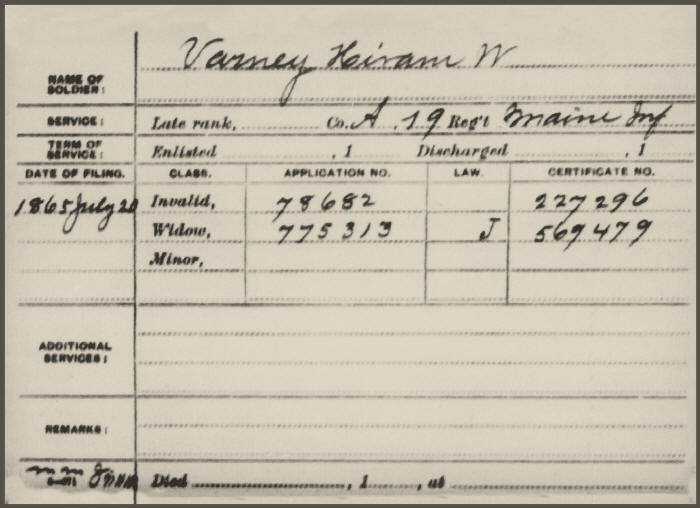 Varney Hiram W
NAME OF
SOLDIER:
SERVICE: Late rank, Co. A, 19 Reg't Maine Inf
TERM OF
SERVICE: Enlisted , 1 Discharged , 1
DATE OF FILING. CLASS. APPLICATION NO. LAW. CERTIFICATE NO.
1865 July 20 Invalid, 78682 227296
Widow, 775313 J 569479
Minor,
ADDITIONAL
SERVICES:
REMARKS:
Died , 1 , at